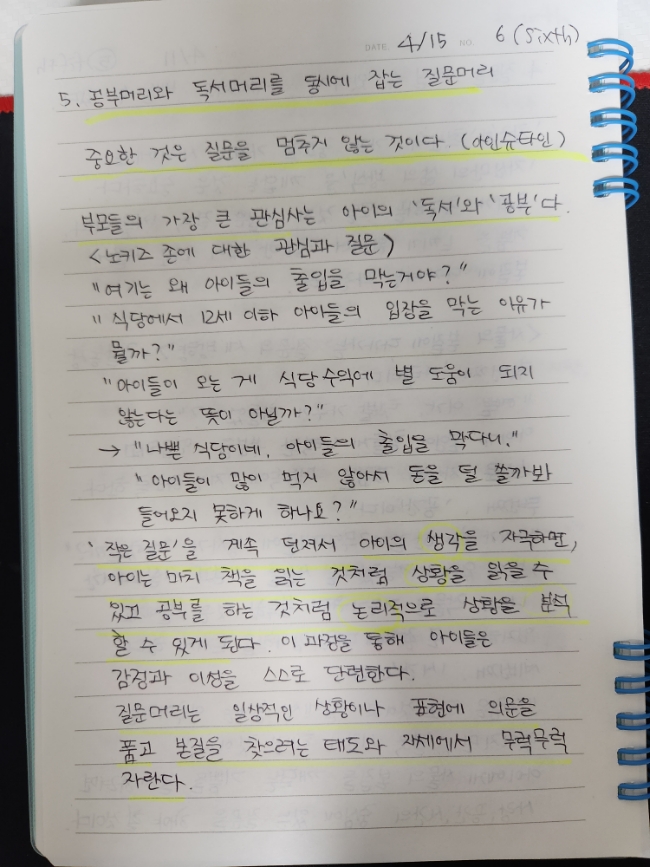 DATE 4/15 NO. 6 (sixth)
5. 공부머리와 독서머리를 동시에 잡는 질문머리
중요한 것은 질문을 멈추지 않는 것이다. (아인슈타인)
부모들의 가장 큰 관심사는 아이의 '독서'와 '공부'다.
<노키즈 존에 대한 관심과 질문>
"여기는 왜 아이들의 출입을 막는거야?"
"식당에서 12세 이하 아이들의 입장을 막는 이유가
뭘까?"
"아이들이 오는 게 식당수익에 별 도움이 되지
않는다는 뜻이 아닐까?"
→ "나쁜 식당이네, 아이들의 출입을 막다니."
"아이들이 많이 먹지 않아서 돈을 덜 쓸까봐
들어오지 못하게 하나요?"
'작은 질문'을 계속 던져서 아이의 생각을 자극하면,
아이는 마치 책을 읽는 것처럼 상황을 읽을 수
있고 공부를 하는 것처럼 논리적으로 상황을 분석
할 수 있게 된다. 이 과정을 통해 아이들은
감정과 이성을 스스로 단련한다.
질문머리는 일상적인 상황이나 표현에 의문을
품고 본질을 찾으려는 태도와 자세에서 무럭무럭
자란다.